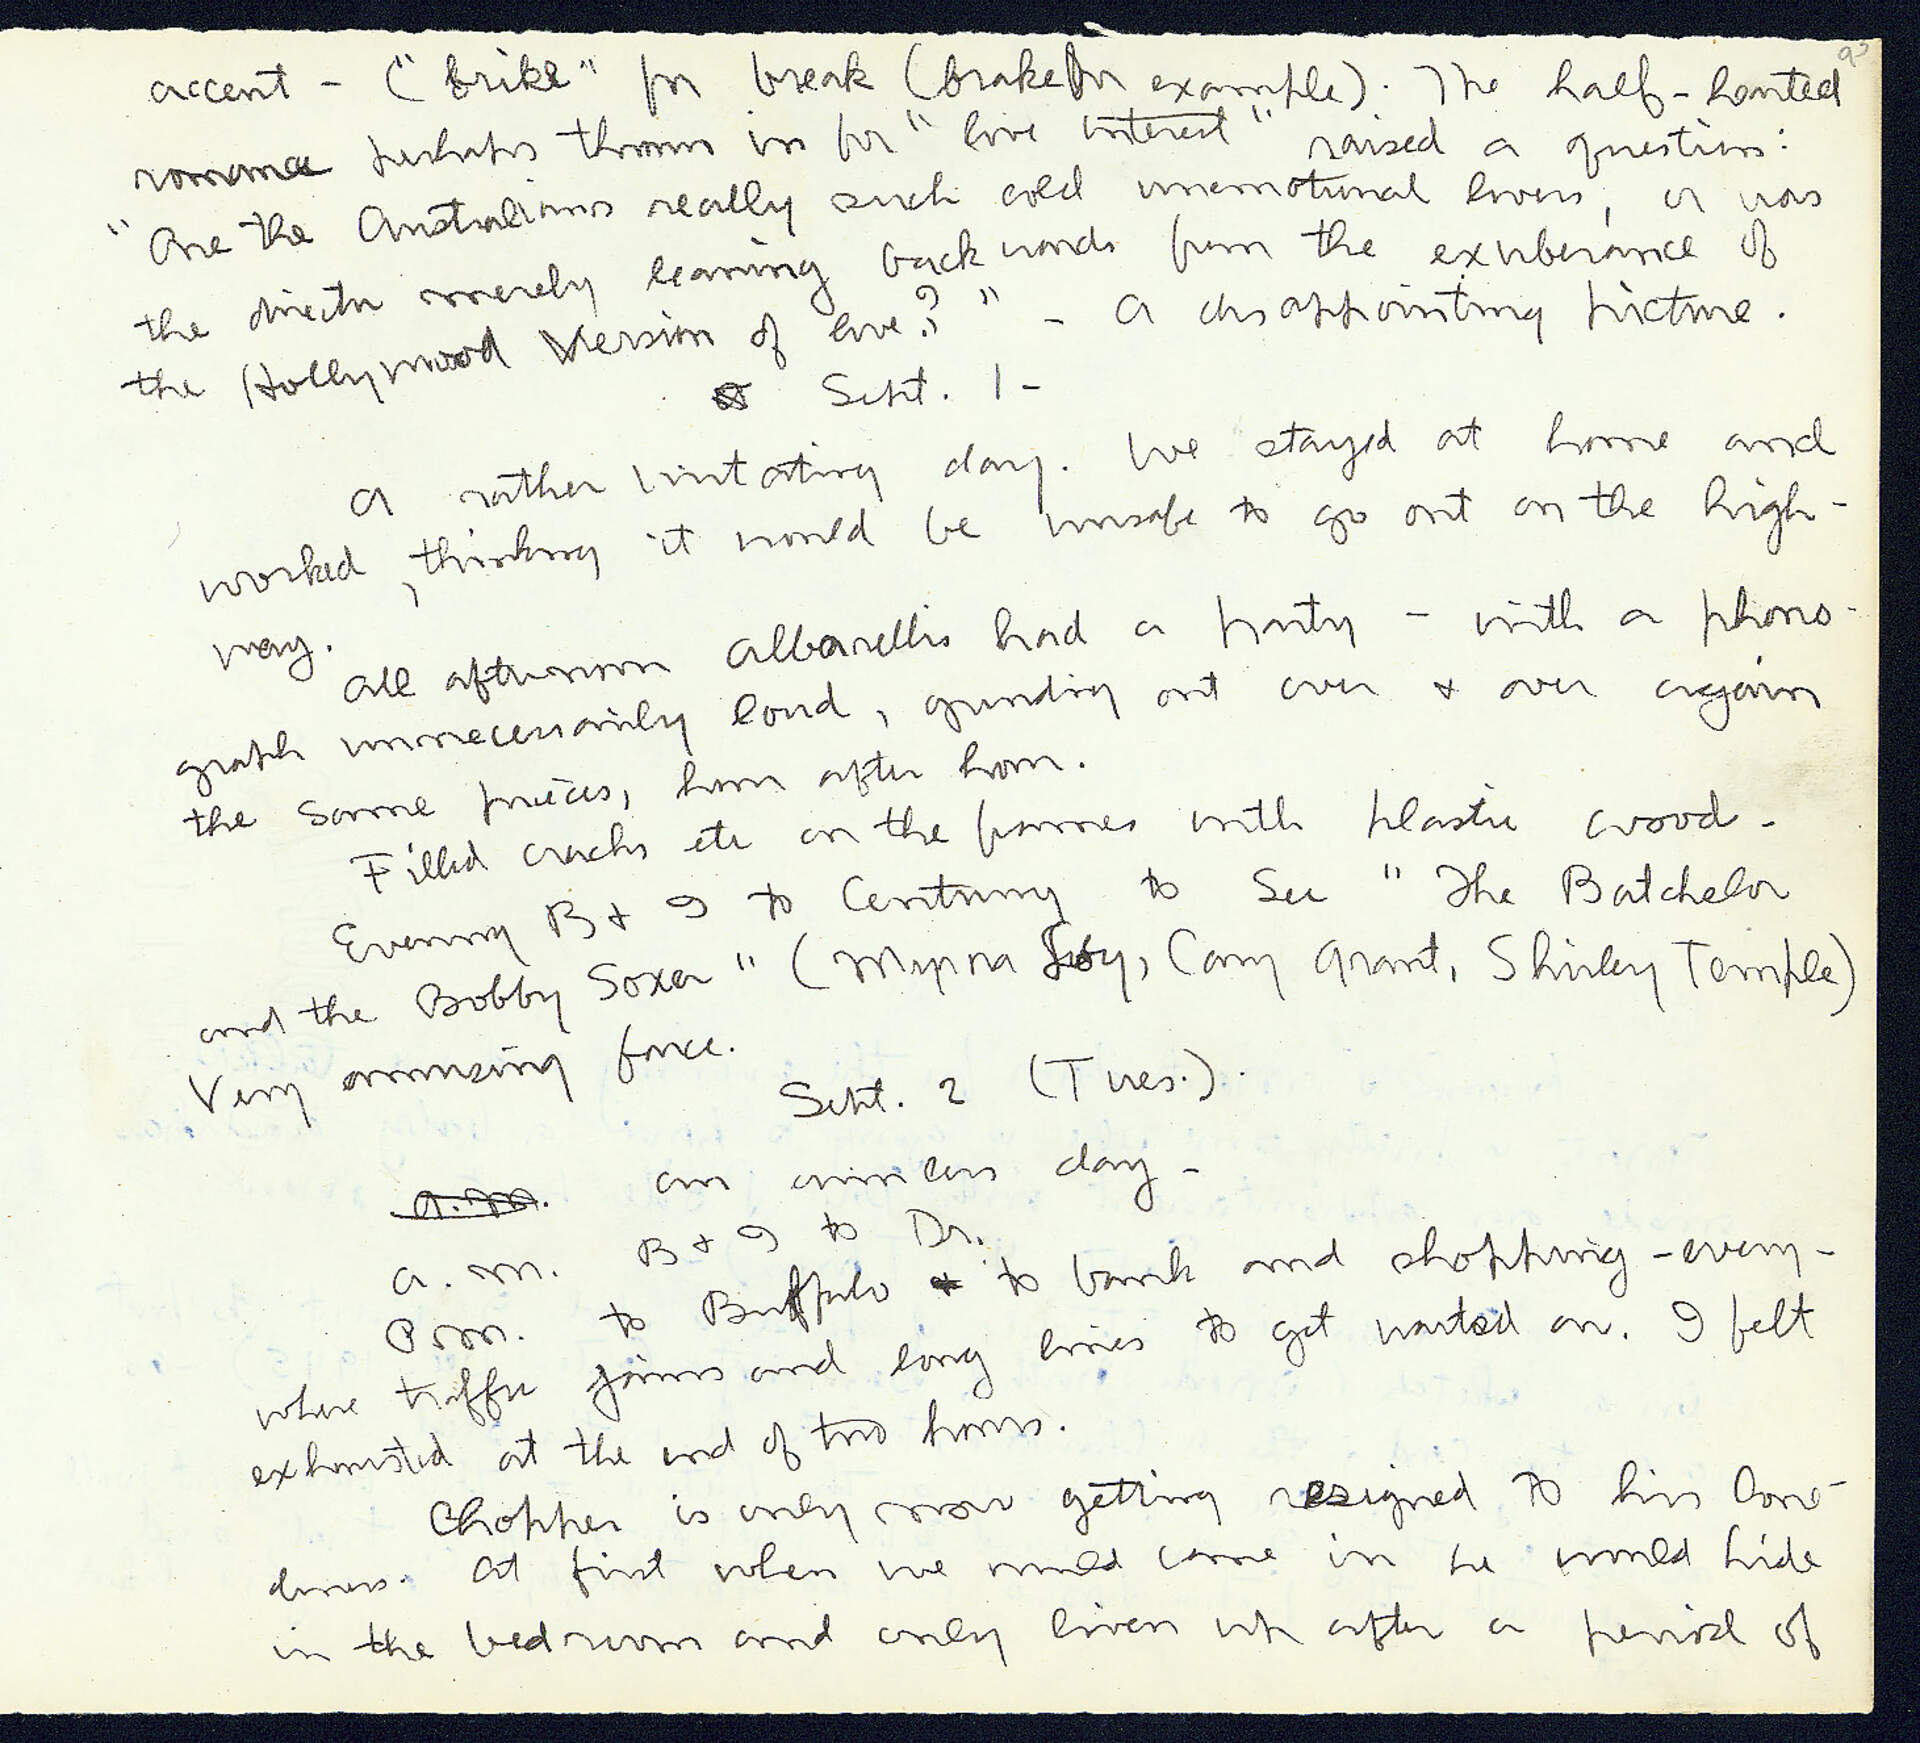 93
accent - ("brike" for break (brake for example). The half-hearted
romance perhaps thrown in for "love interest" raised a question:
"Are the Australians really such cold unemotional lovers, or was
the director merely leaning backwards from the exuberance of
the Hollywood Version of love?" - A disappointing picture.
Sept. 1 -
A rather irritating day. We stayed at home and
worked, thinking it would be unsafe to go out on the high-
way.
All afternoon Albarellis had a party - with a phono-
graph unnecessarily loud, grinding out over & over again
the same pieces, hour after hour.
Filled cracks etc on the frames with plastic wood -
Evening B & I to Century to see "The Batchelor
and the Bobby Soxer" (Myrna Loy, Cary Grant, Shirley Temple)
Very amusing farce.
Sept. 2 (Tues.).
a.m. an aimless day -
a.m. B & I to Dr.
P.m. to Buffalo to bank and shopping - every-
where traffic jams and long lines to get waited on. I felt
exhausted at the end of two hours.
Chopper is only now getting resigned to his lone-
liness. At first when we would come in he would hide
in the bedroom and only liven up after a period of